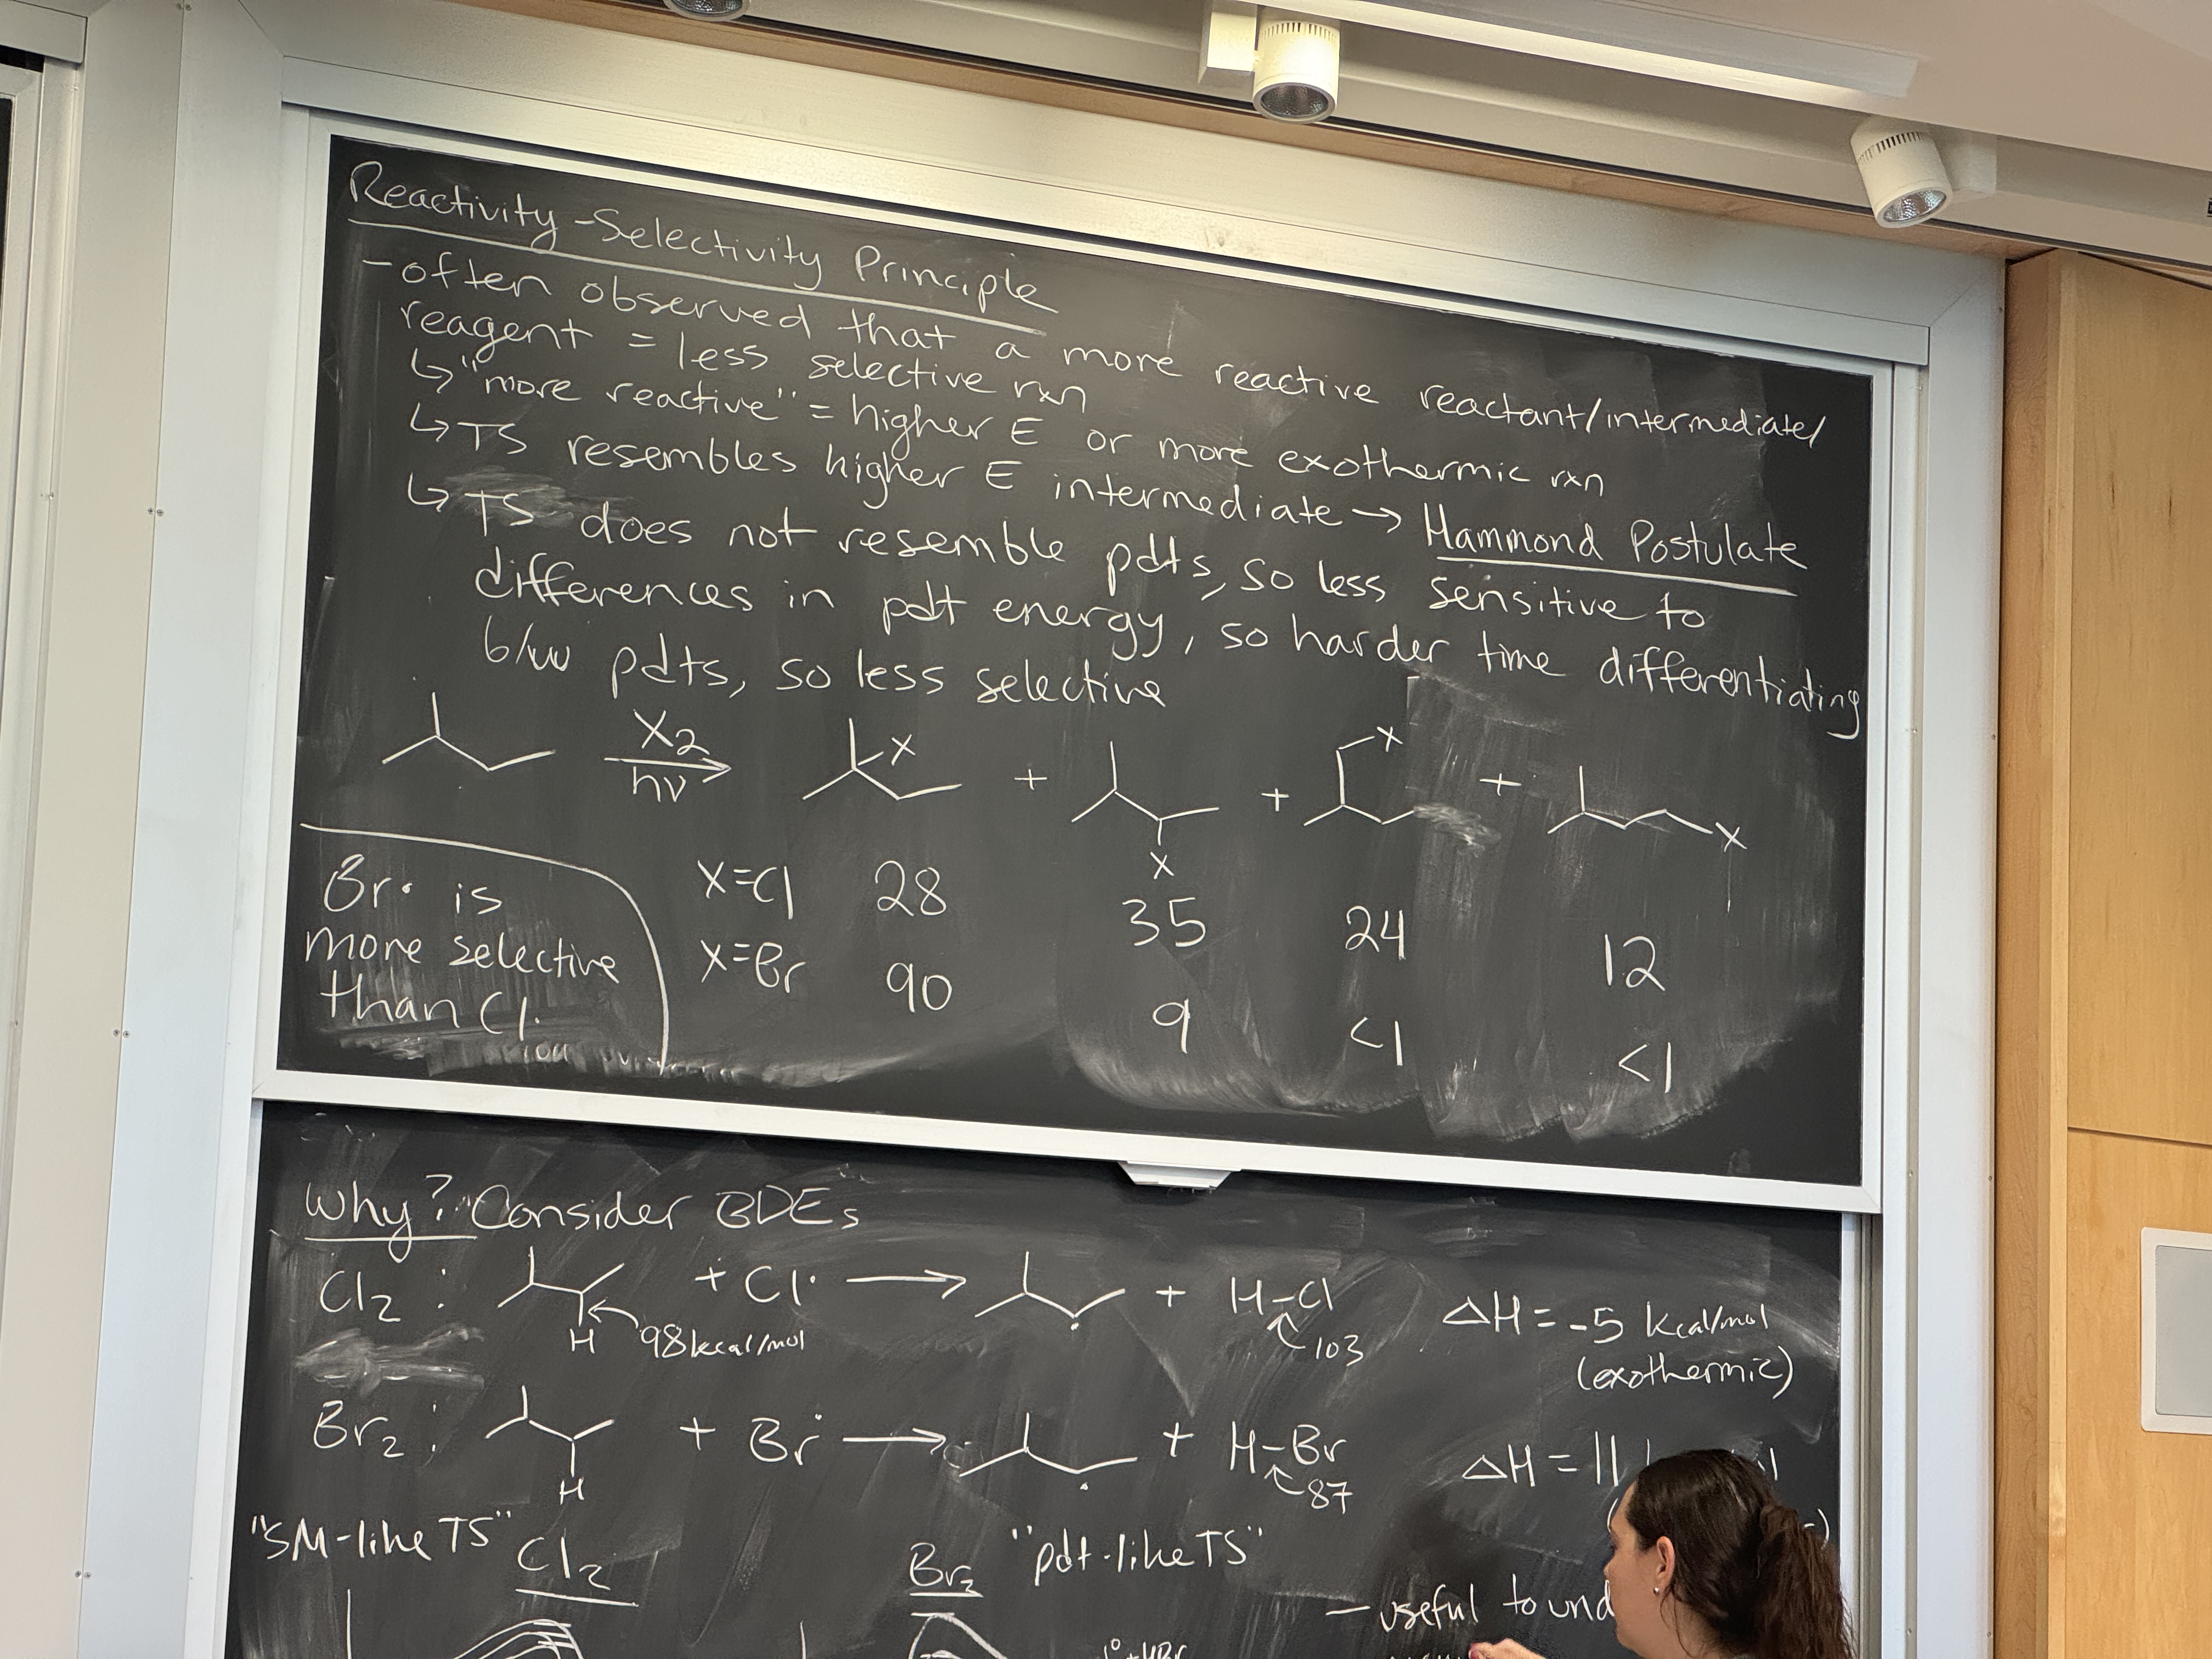 Reactivity-Selectivity Principle
- often observed that a more reactive reactant/intermediate/
reagent = less selective rxn
↳ "more reactive" = higher E or more exothermic rxn
↳ TS resembles higher E intermediate → Hammond Postulate
↳ TS does not resemble pdts, so less sensitive to
differences in pdt energy, so harder time differentiating
b/w pdts, so less selective
X2
hν
X
+
X
+
X
+
X
X=Cl 28 35 24 12
X=Br 90 9 <1 <1
Br· is
more selective
than Cl·
Why? Consider BDEs
Cl2: H 98 kcal/mol + Cl· → + H-Cl 103 ΔH = -5 kcal/mol
(exothermic)
Br2: H + Br· → + H-Br 87 ΔH = 11
"SM-like TS" Cl2
Br2 "pdt-like TS"
- useful to
1° + HBr